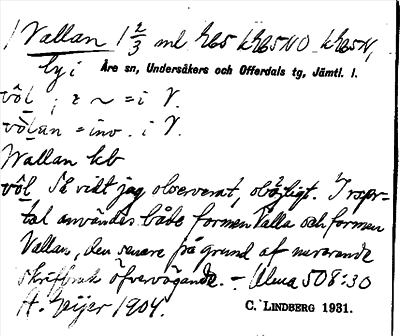 Vallan 1 2/3 ml
by i Åre sn, Undersåkers och Offerdals tg, Jämtl. l.
vôl ; z ~ = i V.
vòlan = inv. i V.
Wallan kb
vôl Så vidt jag observerat, oböjligt. I rspr-
tal användes både formen Valla och formen
Vallan, den senare på grund af nuvarande
skriftbruk öfvervägande. – Alma 508:30
H. Geijer 1904. C. LINDBERG 1931.